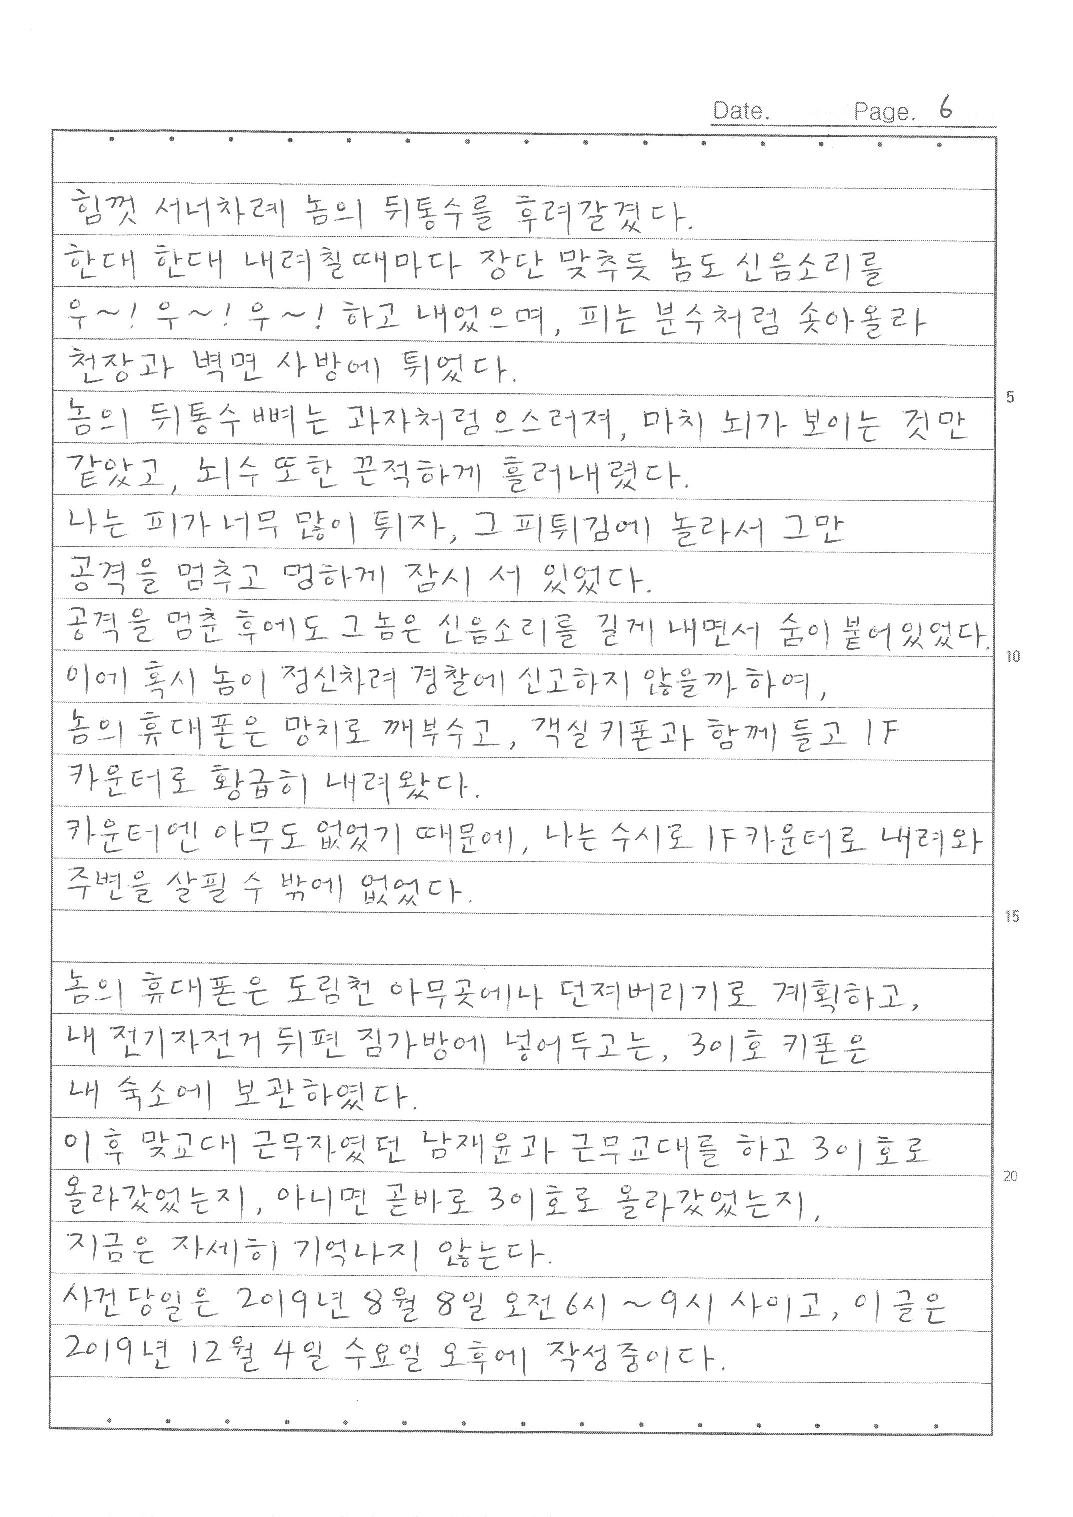 Date. Page. 6
힘껏 서너차례 놈의 뒤통수를 후려갈겼다.
한대 한대 내려칠때마다 장단 맞추듯 놈도 신음소리를
우~! 우~! 우~! 하고 내었으며, 피는 분수처럼 솟아올라
천장과 벽면 사방에 튀었다.
5
놈의 뒤통수뼈는 과자처럼 으스러져, 마치 뇌가 보이는 것만
같았고, 뇌수 또한 끈적하게 흘러내렸다.
나는 피가 너무 많이 튀자, 그 피튀김에 놀라서 그만
공격을 멈추고 멍하게 잠시 서 있었다.
공격을 멈춘 후에도 그놈은 신음소리를 길게 내면서 숨이 붙어있었다.
10
이에 혹시 놈이 정신차려 경찰에 신고하지 않을까 하여,
놈의 휴대폰은 망치로 깨부수고, 객실키폰과 함께 들고 1F
카운터로 황급히 내려왔다.
카운터엔 아무도 없었기 때문에, 나는 수시로 1F카운터로 내려와
주변을 살필 수 밖에 없었다.
15
놈의 휴대폰은 도림천 아무곳에나 던져버리기로 계획하고,
내 전기자전거 뒤편 짐가방에 넣어두고는, 301호 키폰은
내 숙소에 보관하였다.
이후 맞교대 근무자였던 남재윤과 근무교대를 하고 301호로
20
올라갔었는지, 아니면 곧바로 301호로 올라갔었는지,
지금은 자세히 기억나지 않는다.
사건당일은 2019년 8월 8일 오전 6시~9시 사이고, 이 글은
2019년 12월 4일 수요일 오후에 작성중이다.